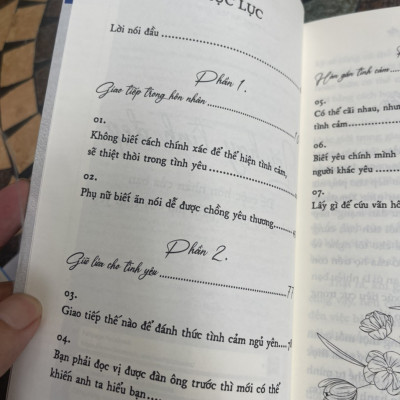 MỤC LỤC
Lời nói đầu
Phần 1.
Giao tiếp trong hôn nhân
01.
Không biết cách chính xác để thể hiện tình cảm,
sẽ thiệt thòi trong tình yêu
02.
Phụ nữ biết ăn nói dễ được chồng yêu thương
Phần 2.
Giữ lửa cho tình yêu
03.
Giao tiếp thế nào để đánh thức tình cảm ngủ yên
04.
Bạn phải đọc vị được đàn ông trước thì mới có thể
khiến anh ta hiểu bạn
Hàn gắn tình cảm
05.
Có thể cãi nhau,
tình cảm
06.
Biết yêu chính mình
người khác yêu
07.
Lấy gì để cứu vãn